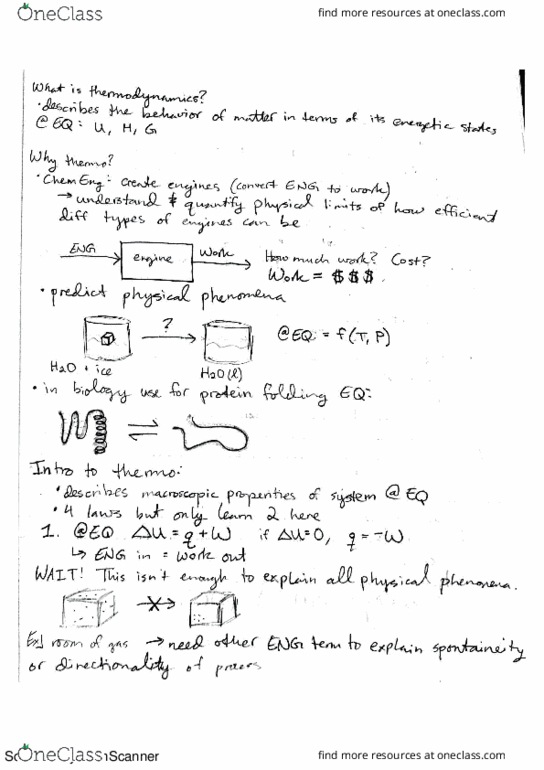 OneClass
find more resources at oneclass.com
What is thermodynamics?
• describes the behavior of matter in terms of its energetic states
@ EQ: U, H, G
Why thermo?
• ChemEng: create engines (convert ENG to work)
→ understand & quantify physical limits of how efficient
diff types of engines can be
ENG → engine Work → How much work? Cost?
Work = $ $ $
• predict physical phenomena
? → @ EQ: = f(T, P)
H2O + ice H2O(l)
• in biology use for protein folding EQ:
Intro to thermo:
• describes macroscopic properties of system @ EQ
• 4 laws but only learn 2 here
1. @EQ ΔU = q + W if ΔU = 0, q = -W
↳ ENG in = work out
WAIT! This isn't enough to explain all physical phenomena.
Ex) room of gas → need other ENG term to explain spontaneity
or directionality of process
OneClass
Scanner
find more resources at oneclass.com